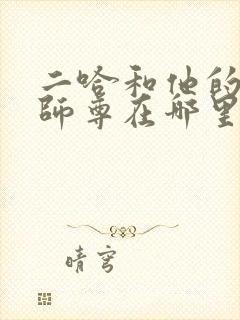 二哈和他的
师尊在哪里
晴穹